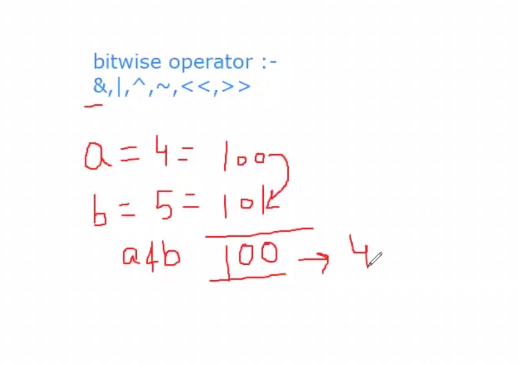 bitwise operator :-
&,|,^,~,<<,>>
a = 4 = 100
b = 5 = 101
a&b 100 → 4